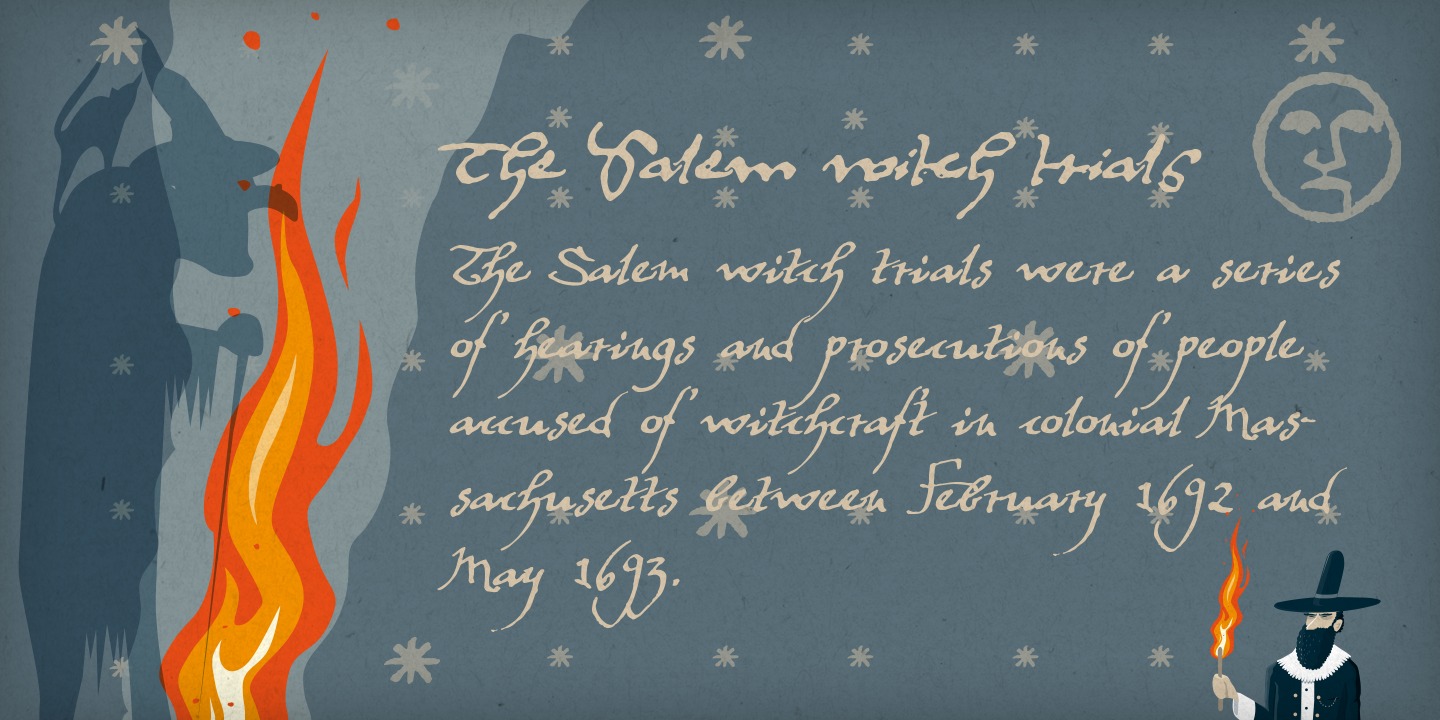 The Salem witch trials
The Salem witch trials were a series
of hearings and prosecutions of people
accused of witchcraft in colonial Mas-
sachusetts between February 1692 and
May 1693.